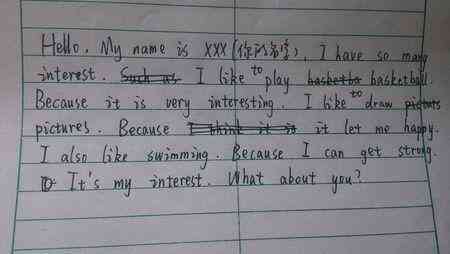 Hello. My name is XXX(你的名字), I have so many
interest. Such as I like to play basketba basketball.
Because it is very interesting. I like to draw pictuts
pictures. Because I think it is it let me happy.
I also like swimming. Because I can get strong.
It's my interest. What about you?